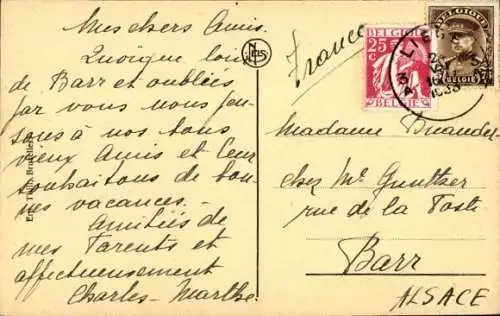 Mes chers Amis.
Quoïque loin
de Barr et oubliés
par vous nous pen-
sons à nos bons
vieux Amis et leur
souhaitons de bon-
nes vacances. -
Amitiés de
mes Parents et
affectueusement
Charles-Marthe.
Ern. Thill, Bruxelles
NELS
France
BELGIQUE
25c
BELGIE
BELGIQUE
BELGIE
LIEGE
1933
Madame
chez Mr Gunther
rue de la Poste
Barr
ALSACE